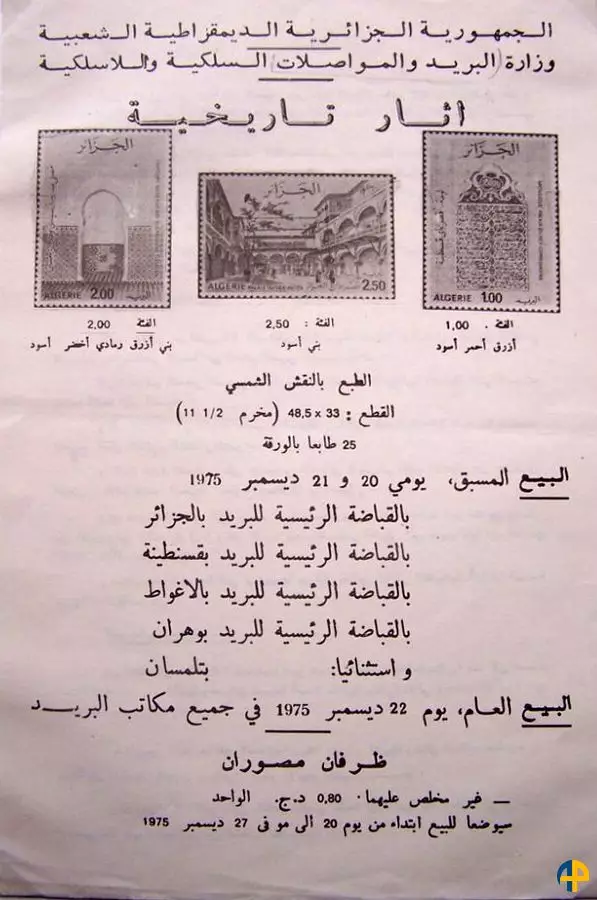 الجمهورية الجزائرية الديمقراطية الشعبية
وزارة البريد والمواصلات السلكية واللاسلكية
اثار تاريخية
الجزائر
ALGERIE 2.00
الجزائر
ALGERIE 2.50
الجزائر
ALGERIE 1.00
الفئة . 1,00
أزرق أحمر أسود
الفئة : 2,50
بني أسود
الفئة 2,00
بني أزرق رمادي أخضر أسود
الطبع بالنقش الشمسي
القطع : 33 × 48,5 (مخرم 1/2 11)
25 طابعا بالورقة
البيع المسبق، يومي 20 و 21 ديسمبر 1975
بالقباضة الرئيسية للبريد بالجزائر
بالقباضة الرئيسية للبريد بقسنطينة
بالقباضة الرئيسية للبريد بالاغواط
بالقباضة الرئيسية للبريد بوهران
و استثنائيا: بتلمسان
البيع العام، يوم 22 ديسمبر 1975 في جميع مكاتب البريد
ظرفان مصوران
— غير مخلص عليهما· 0,80 د.ج. الواحد
سيوضعا للبيع ابتداء من يوم 20 الى مو فى 27 ديسمبر 1975